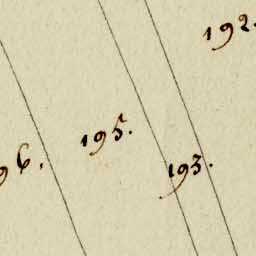 192.
195.
193.
96.